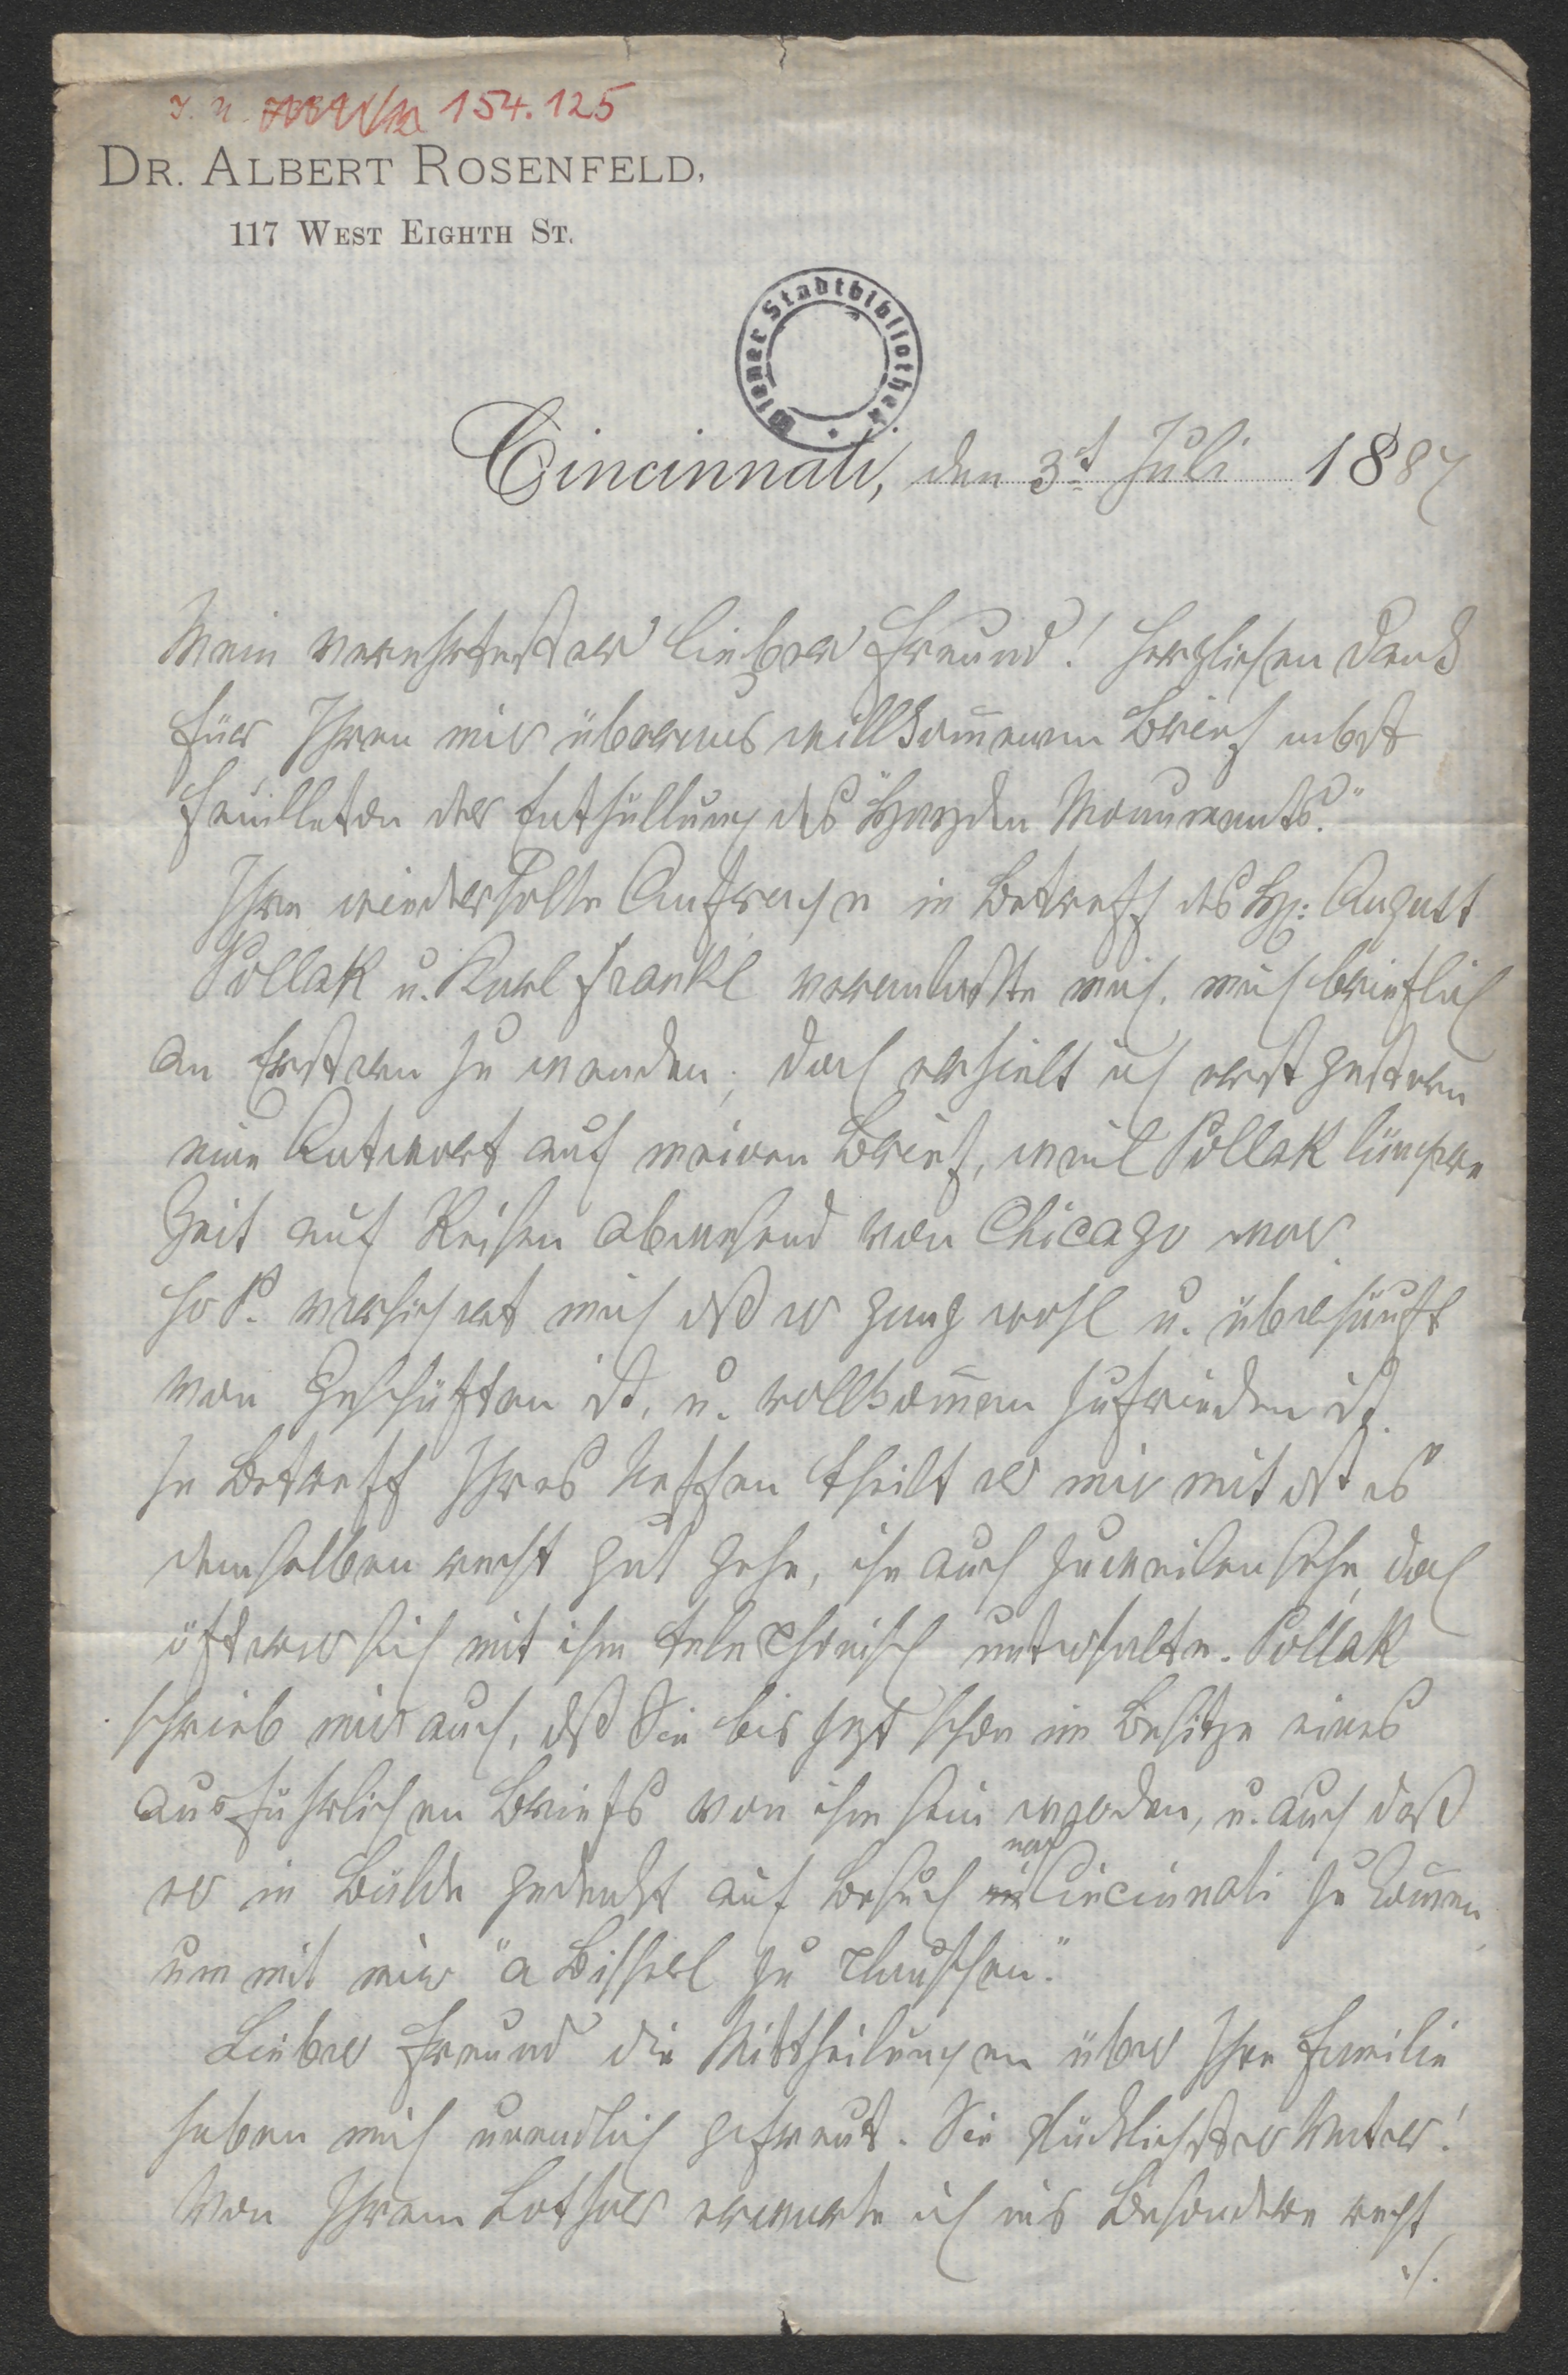 J. N. 154.125
DR. ALBERT ROSENFELD,
117 WEST EIGHTH ST.
Wiener Stadtbibliothek
Cincinnati, den 3t Juli 1887
Mein verehrtester lieber Freund! Herzlichen Dank
für Ihren mir überaus willkom̅enen Brief nebst
Feuilleton der Enthüllung des "Hayden Monuments."
Ihre wiederholte Anfrage in Betreff des H: August
Pollak u. Karl Frankl veranlaßte mich, mich brieflich
an Erstern zu wenden; doch erhielt ich erst gestern
eine Antwort auf meinen Brief, weil Pollak längere
Zeit auf Reisen abwesend von Chicago war.
H P. versichert mich dß er ganz wohl u. überhäuft
von Geschäften ist, u. vollkom̅en zufrieden ist.
In Betreff Ihres Neffen theilt er mir mit dß es
demselben recht gut gehe, ihn auch zuweilen sehe, doch
öfterer sich mit ihm telephonisch unterhalte. Pollak
schrieb mir auch, dß Sie bis jezt schon im Besitze eines
ausführlichen Briefs von ihm sein werden, u. auch daß
nach
er in Bälde gedenkt auf Besuch in Cincinnati zu kom̅en
um mit mir "a Bisserl zu plauschen."
Lieber Freund die Mittheilungen über Ihre Familie
haben mich unendlich gefreut. Sie glücklichster Vater!
Von Ihrem Lothar erwarte ich ins Besondere recht
./.